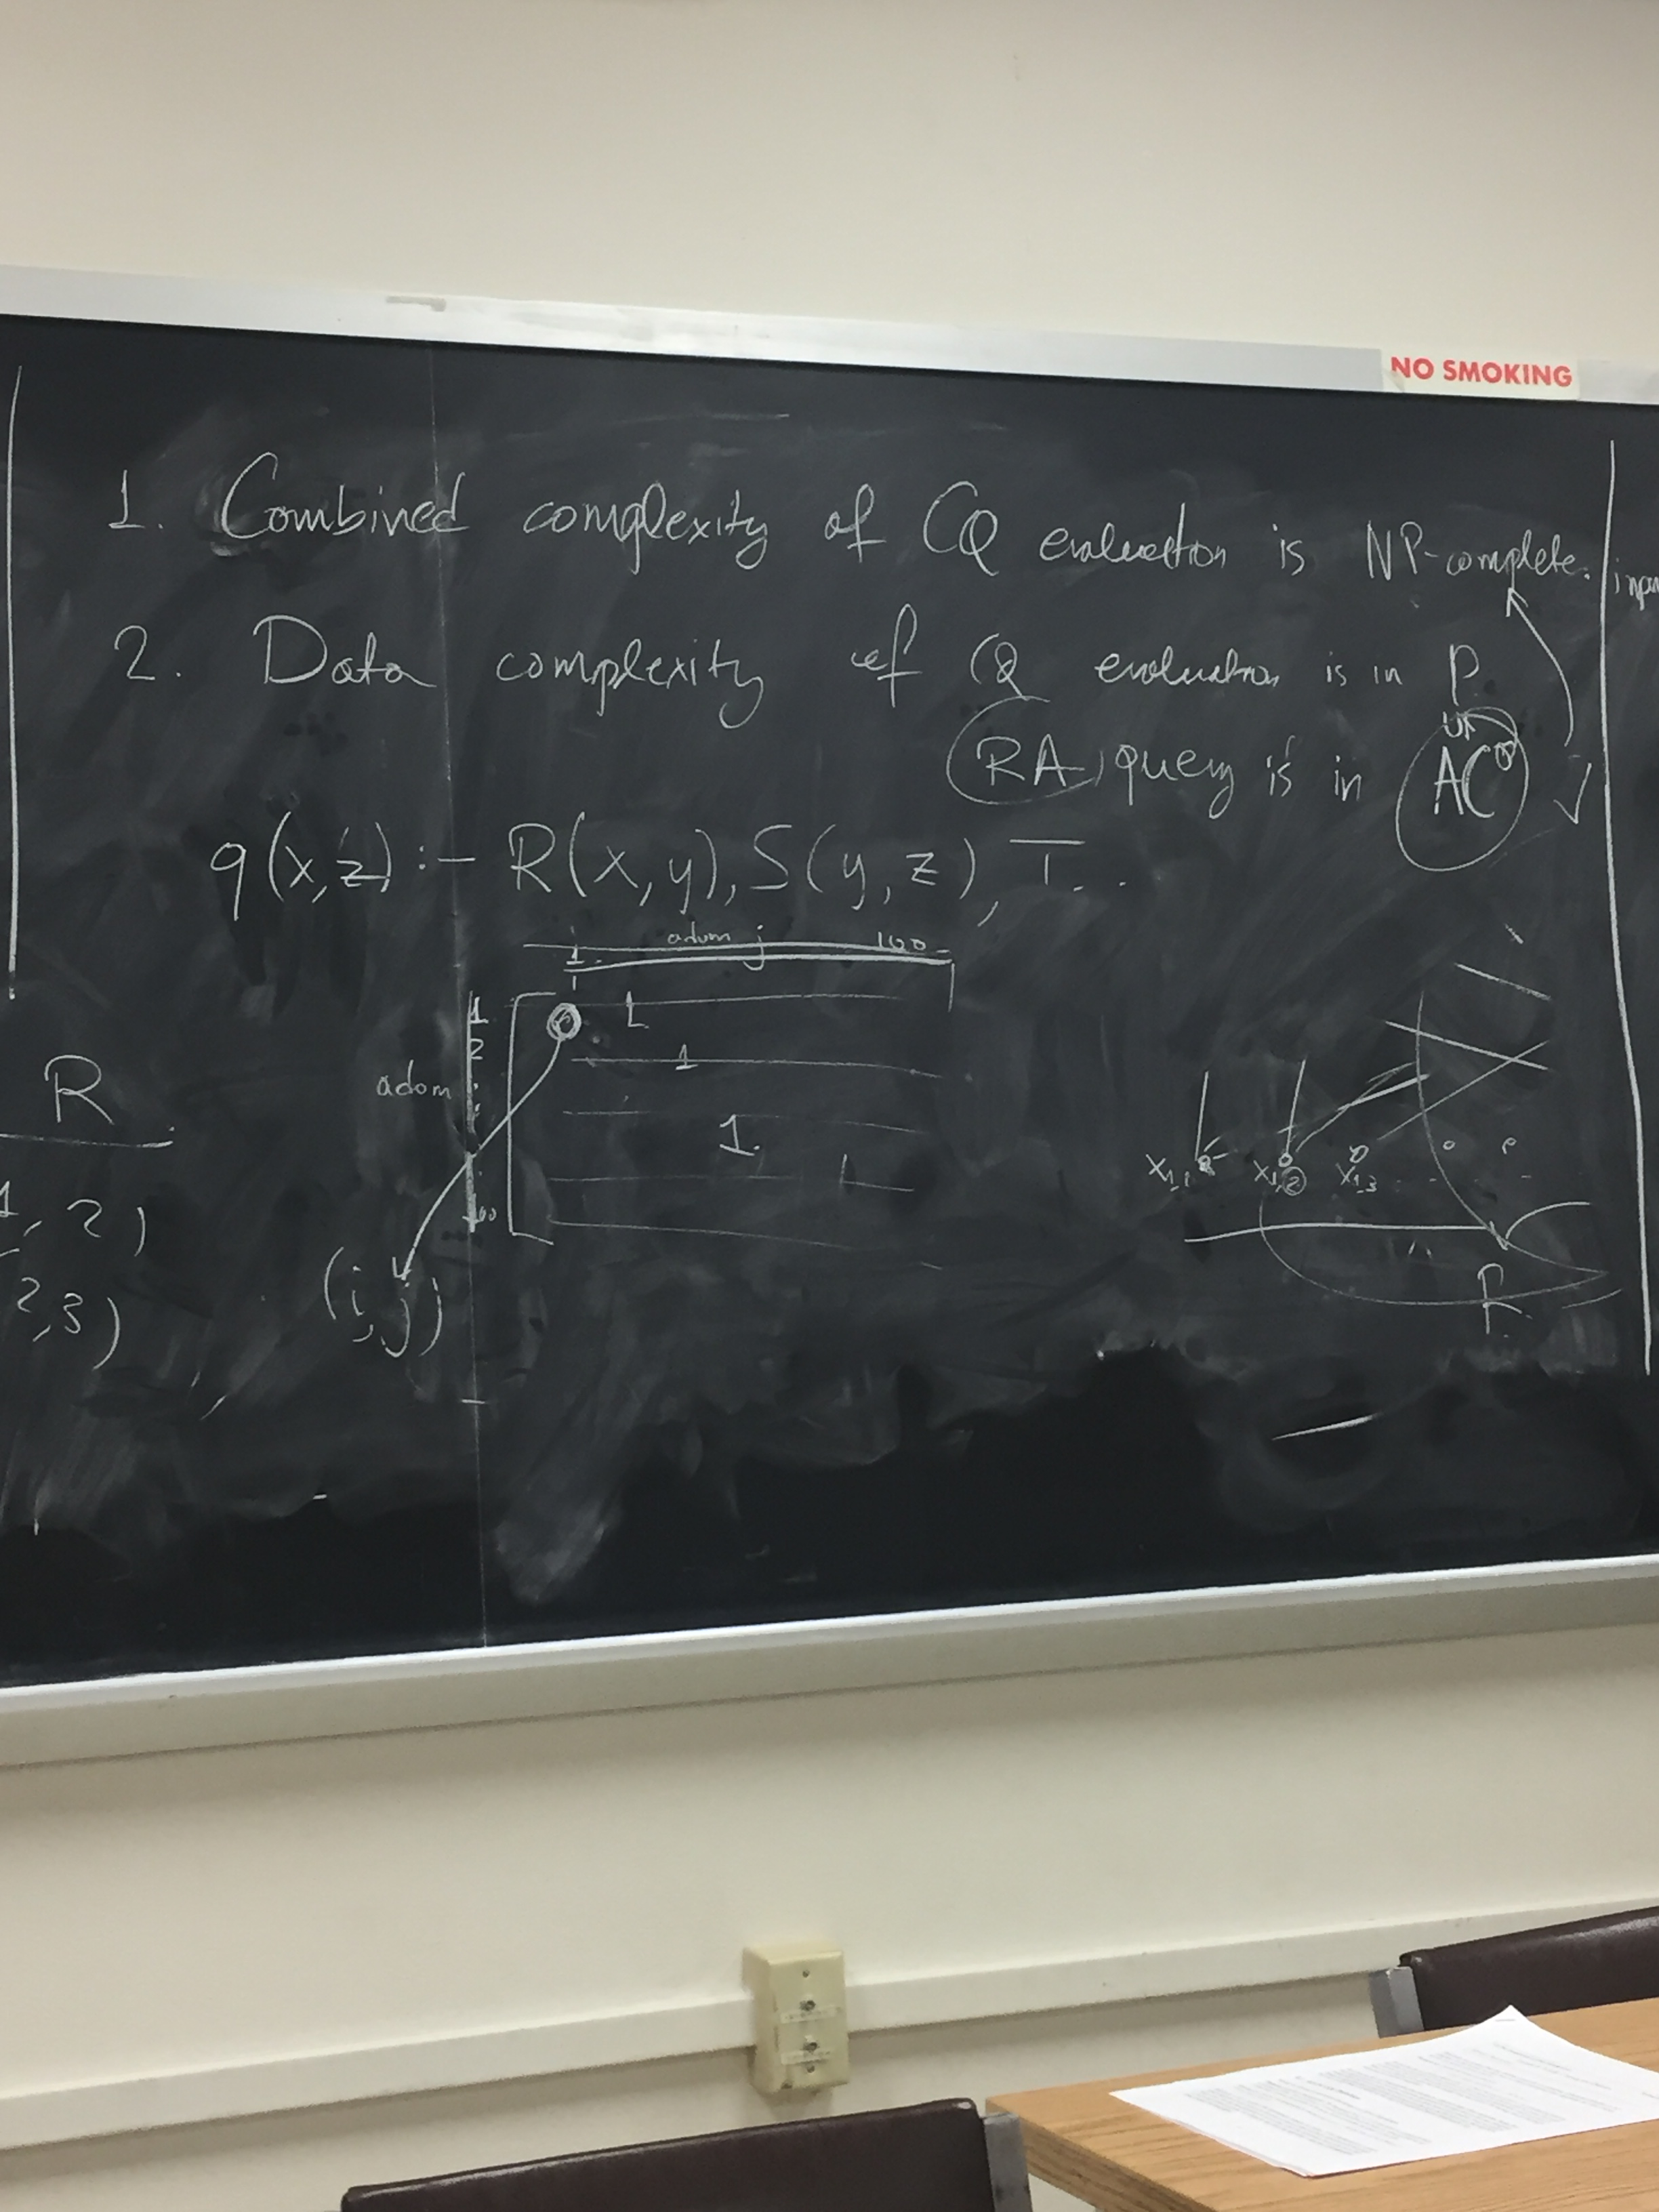 NO SMOKING
1. Combined complexity of CQ evaluation is NP-complete.
2. Data complexity of CQ evaluation is in P
RA query is in AC⁰ ✓
q(x,z) :- R(x,y), S(y,z), T...
1 adom j 100
1 1
2 1
adom
1.
1
100
R
1, 2)
2,3)
(i,j)
x₁,₁ x₁,₂ x₁,₃
R